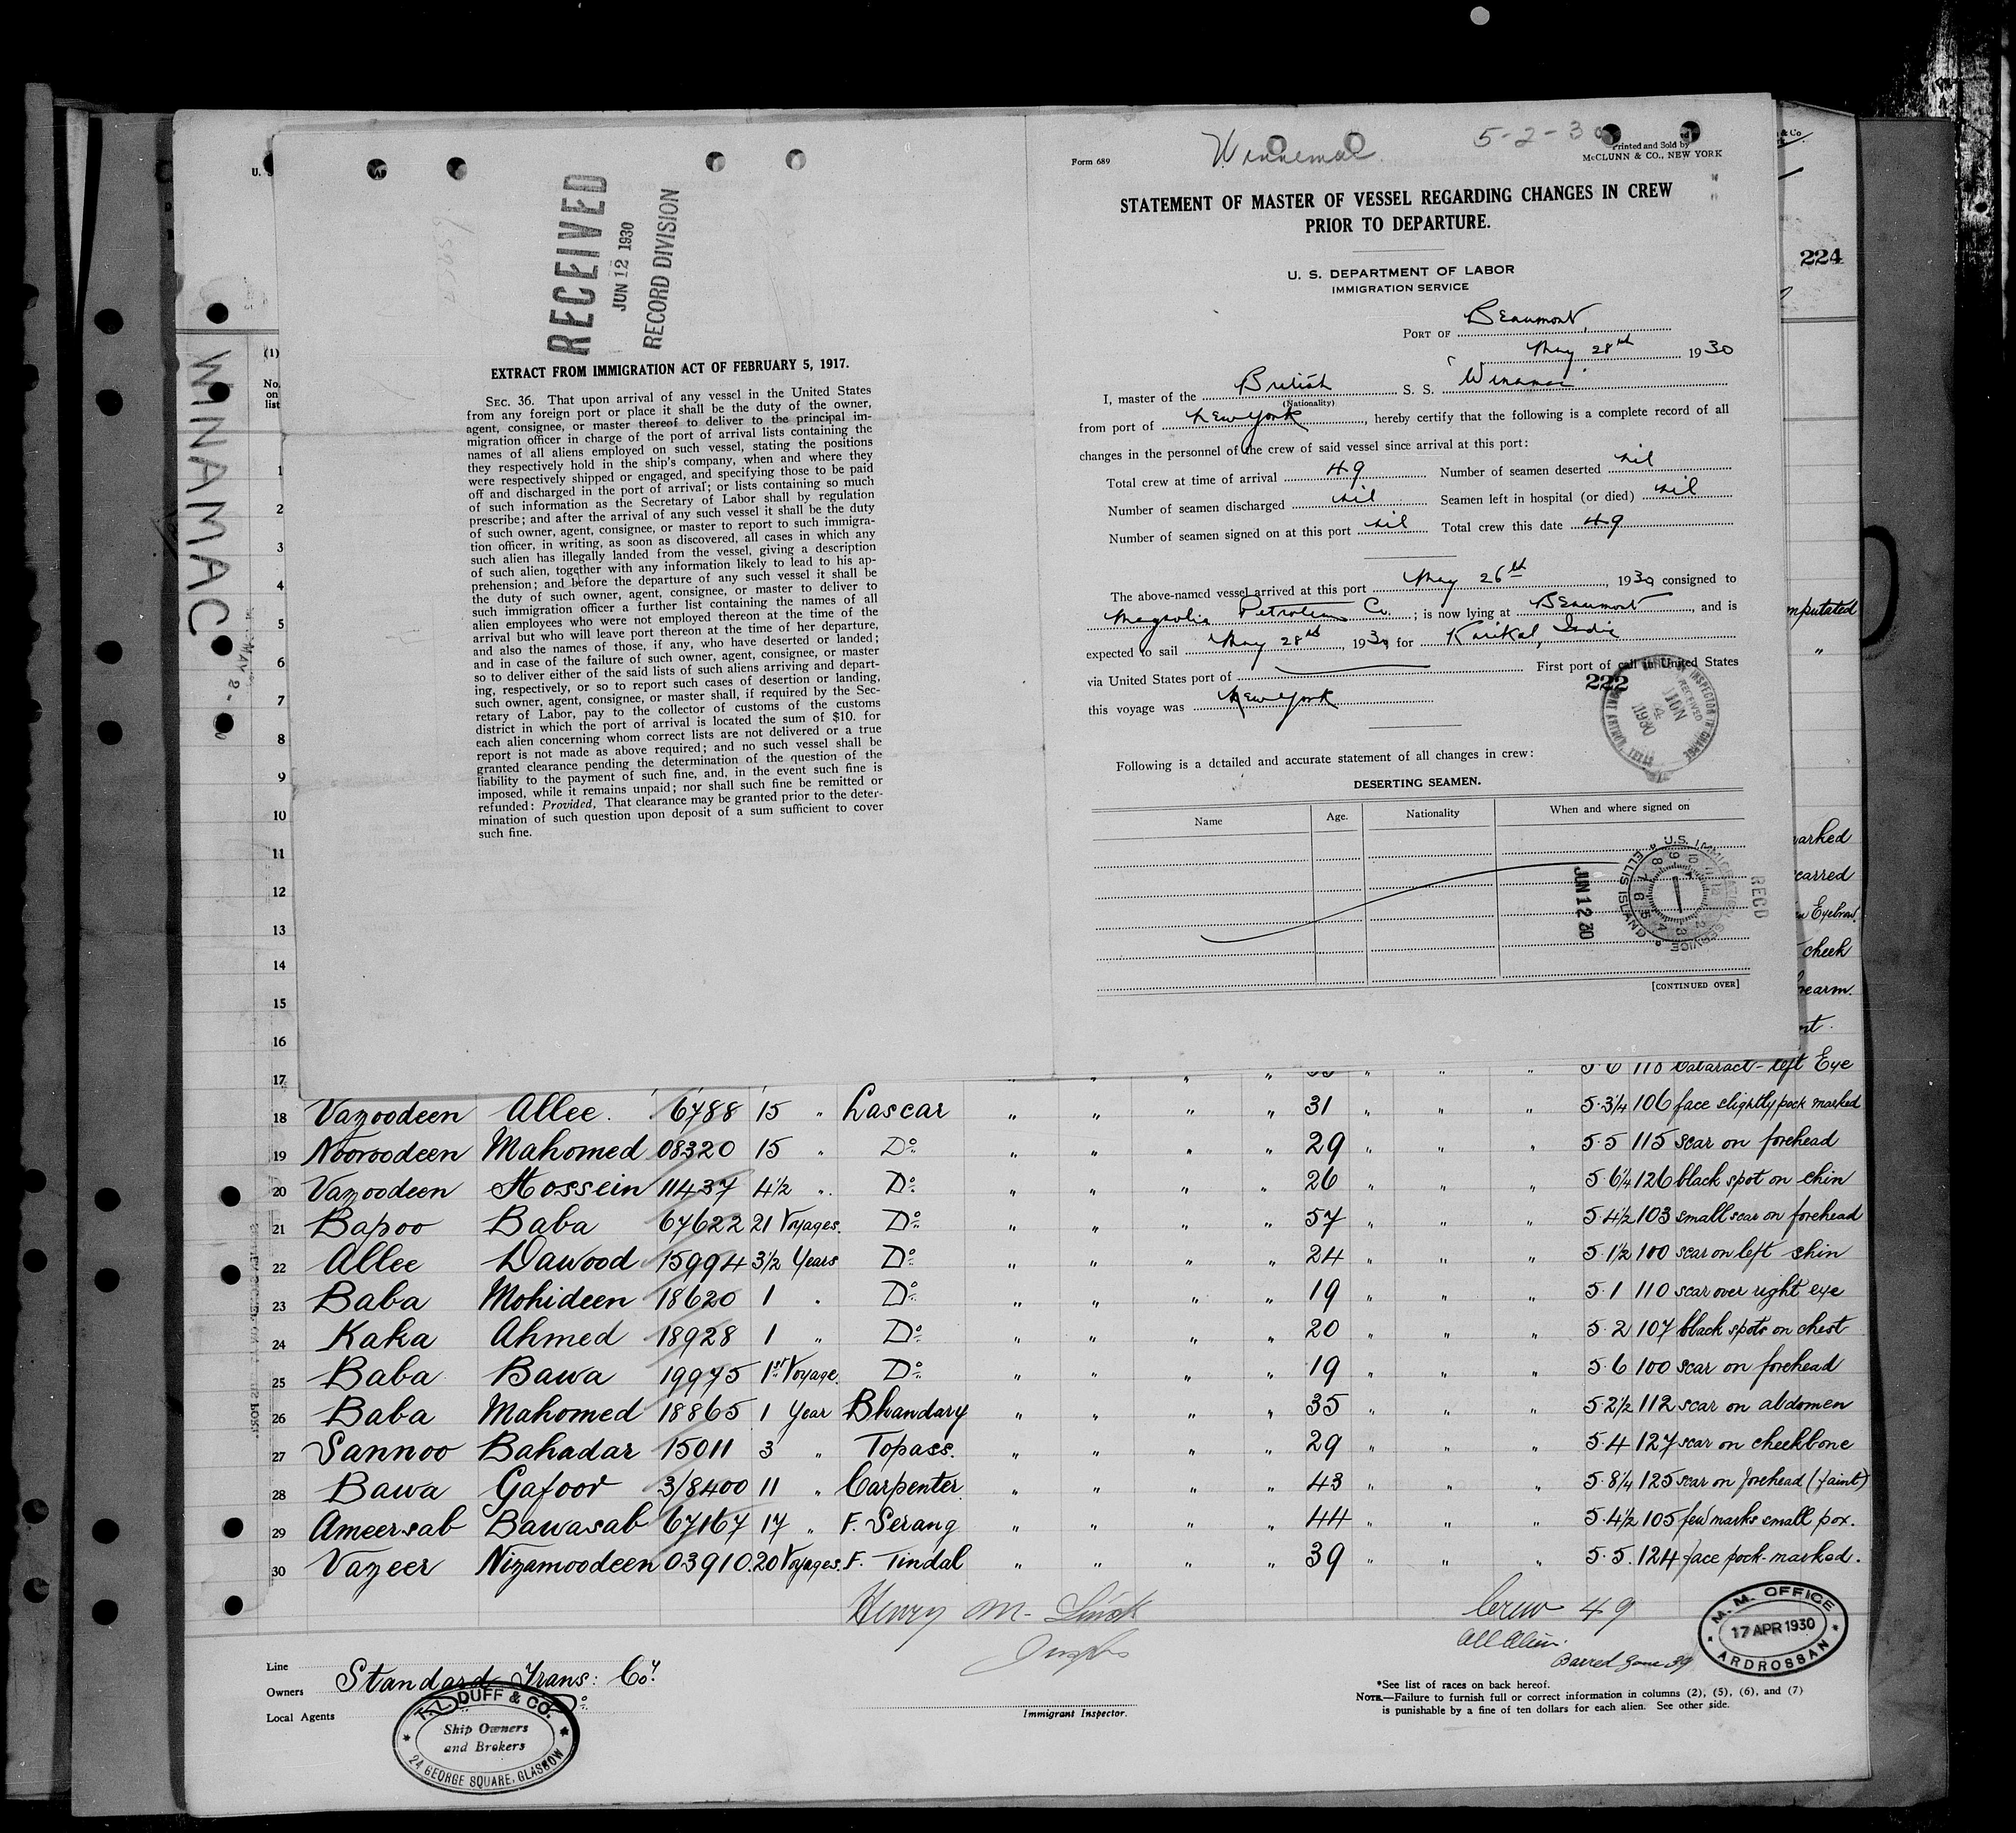 WINAMAC
MAY 2 -
U.
(1)
No.
on
list
1
2
3
4
5
6
7
8
9
10
11
12
13
14
15
16
17
RECEIVED
JUN 12 1930
RECORD DIVISION
EXTRACT FROM IMMIGRATION ACT OF FEBRUARY 5, 1917.
SEC. 36. That upon arrival of any vessel in the United States
from any foreign port or place it shall be the duty of the owner,
agent, consignee, or master thereof to deliver to the principal im-
migration officer in charge of the port of arrival lists containing the
names of all aliens employed on such vessel, stating the positions
they respectively hold in the ship's company, when and where they
were respectively shipped or engaged, and specifying those to be paid
off and discharged in the port of arrival; or lists containing so much
of such information as the Secretary of Labor shall by regulation
prescribe; and after the arrival of any such vessel it shall be the duty
of such owner, agent, consignee, or master to report to such immigra-
tion officer, in writing, as soon as discovered, all cases in which any
such alien has illegally landed from the vessel, giving a description
of such alien, together with any information likely to lead to his ap-
prehension; and before the departure of any such vessel it shall be
the duty of such owner, agent, consignee, or master to deliver to
such immigration officer a further list containing the names of all
alien employees who were not employed thereon at the time of the
arrival but who will leave port thereon at the time of her departure,
and also the names of those, if any, who have deserted or landed;
and in case of the failure of such owner, agent, consignee, or master
so to deliver either of the said lists of such aliens arriving and depart-
ing, respectively, or so to report such cases of desertion or landing,
such owner, agent, consignee, or master shall, if required by the Sec-
retary of Labor, pay to the collector of customs of the customs
district in which the port of arrival is located the sum of $10. for
each alien concerning whom correct lists are not delivered or a true
report is not made as above required; and no such vessel shall be
granted clearance pending the determination of the question of the
liability to the payment of such fine, and, in the event such fine is
imposed, while it remains unpaid; nor shall such fine be remitted or
refunded: Provided, That clearance may be granted prior to the deter-
mination of such question upon deposit of a sum sufficient to cover
such fine.
Form 689
Winnemac
5-2-30
Printed and Sold by
McCLUNN & CO., NEW YORK
STATEMENT OF MASTER OF VESSEL REGARDING CHANGES IN CREW
PRIOR TO DEPARTURE.
U. S. DEPARTMENT OF LABOR
IMMIGRATION SERVICE
PORT OF Beaumont,
May 28th 1930
I, master of the British S. S. "Winamac"
(Nationality)
from port of New York, hereby certify that the following is a complete record of all
changes in the personnel of the crew of said vessel since arrival at this port:
Total crew at time of arrival 49 Number of seamen deserted nil
Number of seamen discharged nil Seamen left in hospital (or died) nil
Number of seamen signed on at this port nil Total crew this date 49
The above-named vessel arrived at this port May 26th, 1930 consigned to
Magnolia Petroleum Co.; is now lying at Beaumont, and is
expected to sail May 28th, 1930 for Karikal, India
via United States port of First port of call in United States
this voyage was New York
222
INSPECTOR IN CHARGE
RECEIVED
JUN
1930
Following is a detailed and accurate statement of all changes in crew:
DESERTING SEAMEN.
Name Age. Nationality When and where signed on
RECD
U.S. IMMIGRATION SERVICE
ELLIS ISLAND
JUN 12 30
[CONTINUED OVER]
& Co
224
mputated
"
marked
carred
Eyebrow.
cheek
rearm.
110 Cataract - left Eye
18 Vazoodeen Allee. 6788 15 " Lascar " " " " 31 " " " 5·3¼ 106 face slightly pock marked
19 Nooroodeen Mahomed 08320 15 " Do " " " " 29 " " " 5·5 115 scar on forehead
20 Vazoodeen Hossein 11437 4½ " Do " " " " 26 " " " 5 6¼ 126 black spot on chin
21 Bapoo Baba 67622 21 Voyages. Do " " " " 57 " " " 5·4½ 103 small scar on forehead
22 Allee Dawood 15994 3½ Years Do " " " " 24 " " " 5·1½ 100 scar on left shin
23 Baba Mohideen 18620 1 " Do " " " " 19 " " " 5·1 110 scar over right eye
24 Kaka Ahmed 18928 1 " Do " " " " 20 " " " 5·2 107 black spots on chest
25 Baba Bawa 19975 1st Voyage. Do " " " " 19 " " " 5·6 100 scar on forehead
26 Baba Mahomed 18865 1 Year Bhandary " " " " 35 " " " 5·2½ 112 scar on abdomen
27 Sannoo Bahadar 15011 3 " Topass. " " " " 29 " " " 5·4 127 scar on cheekbone
28 Bawa Gafoor 3/8400 11 " Carpenter " " " " 43 " " " 5·8¼ 125 scar on forehead (faint)
29 Ameersab Bawasab 67167 17 " F. Serang " " " " 44 " " " 5·4½ 105 few marks small pox.
30 Vazeer Nizamoodeen 03910. 20 Voyages. F. Tindal " " " " 39 " " " 5·5. 124 face pock-marked.
Henry M.
Crew 49
All Alien.
Barred Zone 39
M. M. OFFICE
17 APR 1930
ARDROSSAN
Line
Owners Standard Trans: Coy.
Local Agents Do
DUFF & CO.
Ship Owners
and Brokers
24 GEORGE SQUARE, GLASGOW
Immigrant Inspector.
*See list of races on back hereof.
NOTE.—Failure to furnish full or correct information in columns (2), (5), (6), and (7)
is punishable by a fine of ten dollars for each alien. See other side.